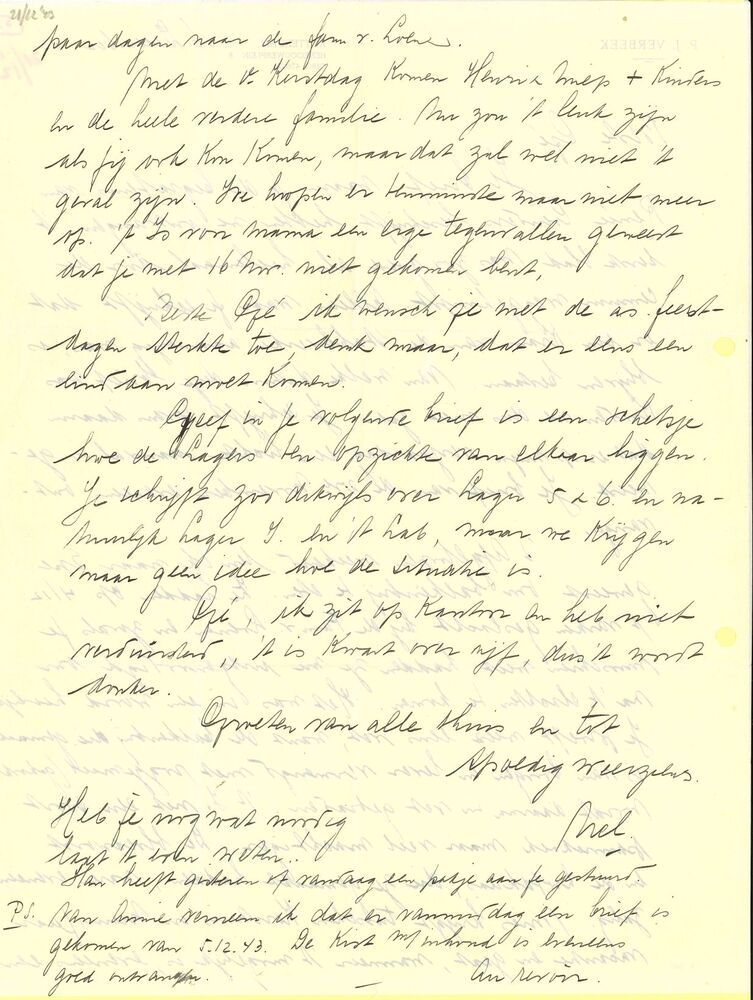 21/12 '43
P. J. VERBEEK
paar dagen naar de fam v. Loene.
Met de 1e Kerstdag komen Henri & Miep + Kinders
en de heele verdere familie. Nu zou 't leuk zijn
als jij ook kon komen, maar dat zal wel niet 't
geval zijn. We hopen er tenminste maar niet meer
op. 't Is voor mama een erge tegenvallen geweest
dat je met 16 Nov. niet gekomen bent,
Beste Ojé ik wensch je met de as. feest-
dagen sterkte toe, denk maar, dat er eens een
eind aan moet komen.
Geef in je volgende brief is een schetsje
hoe de Lagers ten opzichte van elkaar liggen.
Je schrijft zoo dikwijls over Lager 5 & 6. en na-
tuurlijk Lager I. en 't Lab, maar we krijgen
maar geen idee hoe de situatie is.
Ojé, ik zit op Kantoor en heb niet
verduisterd, 't is kwart over vijf, dus 't wordt
donker.
Groeten van alle thuis en tot
spoedig weerziens.
Nel.
Heb je nog wat noodig
laat 't even weten..
Han heeft gisteren of vandaag een pakje aan je gestuurd.
P.S. Van Annie verneem ik dat er vanmiddag een brief is
gekomen van 5.12.43. De Kist is eveneens
goed ontvangen. — Au revoir.